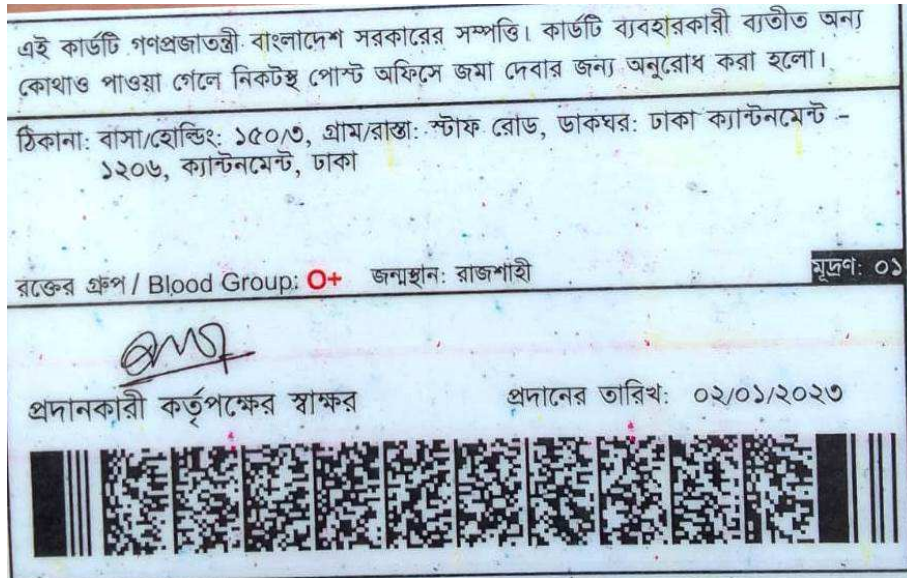 এই কার্ডটি গণপ্রজাতন্ত্রী বাংলাদেশ সরকারের সম্পত্তি। কার্ডটি ব্যবহারকারী ব্যতীত অন্য
কোথাও পাওয়া গেলে নিকটস্থ পোস্ট অফিসে জমা দেবার জন্য অনুরোধ করা হলো।
ঠিকানা: বাসা/হোল্ডিং: ১৫০/৩, গ্রাম/রাস্তা: স্টাফ রোড, ডাকঘর: ঢাকা ক্যান্টনমেন্ট -
১২০৬, ক্যান্টনমেন্ট, ঢাকা
রক্তের গ্রুপ / Blood Group: O+ জন্মস্থান: রাজশাহী মূদ্রণ: ০১
প্রদানকারী কর্তৃপক্ষের স্বাক্ষর প্রদানের তারিখ: ০২/০১/২০২৩